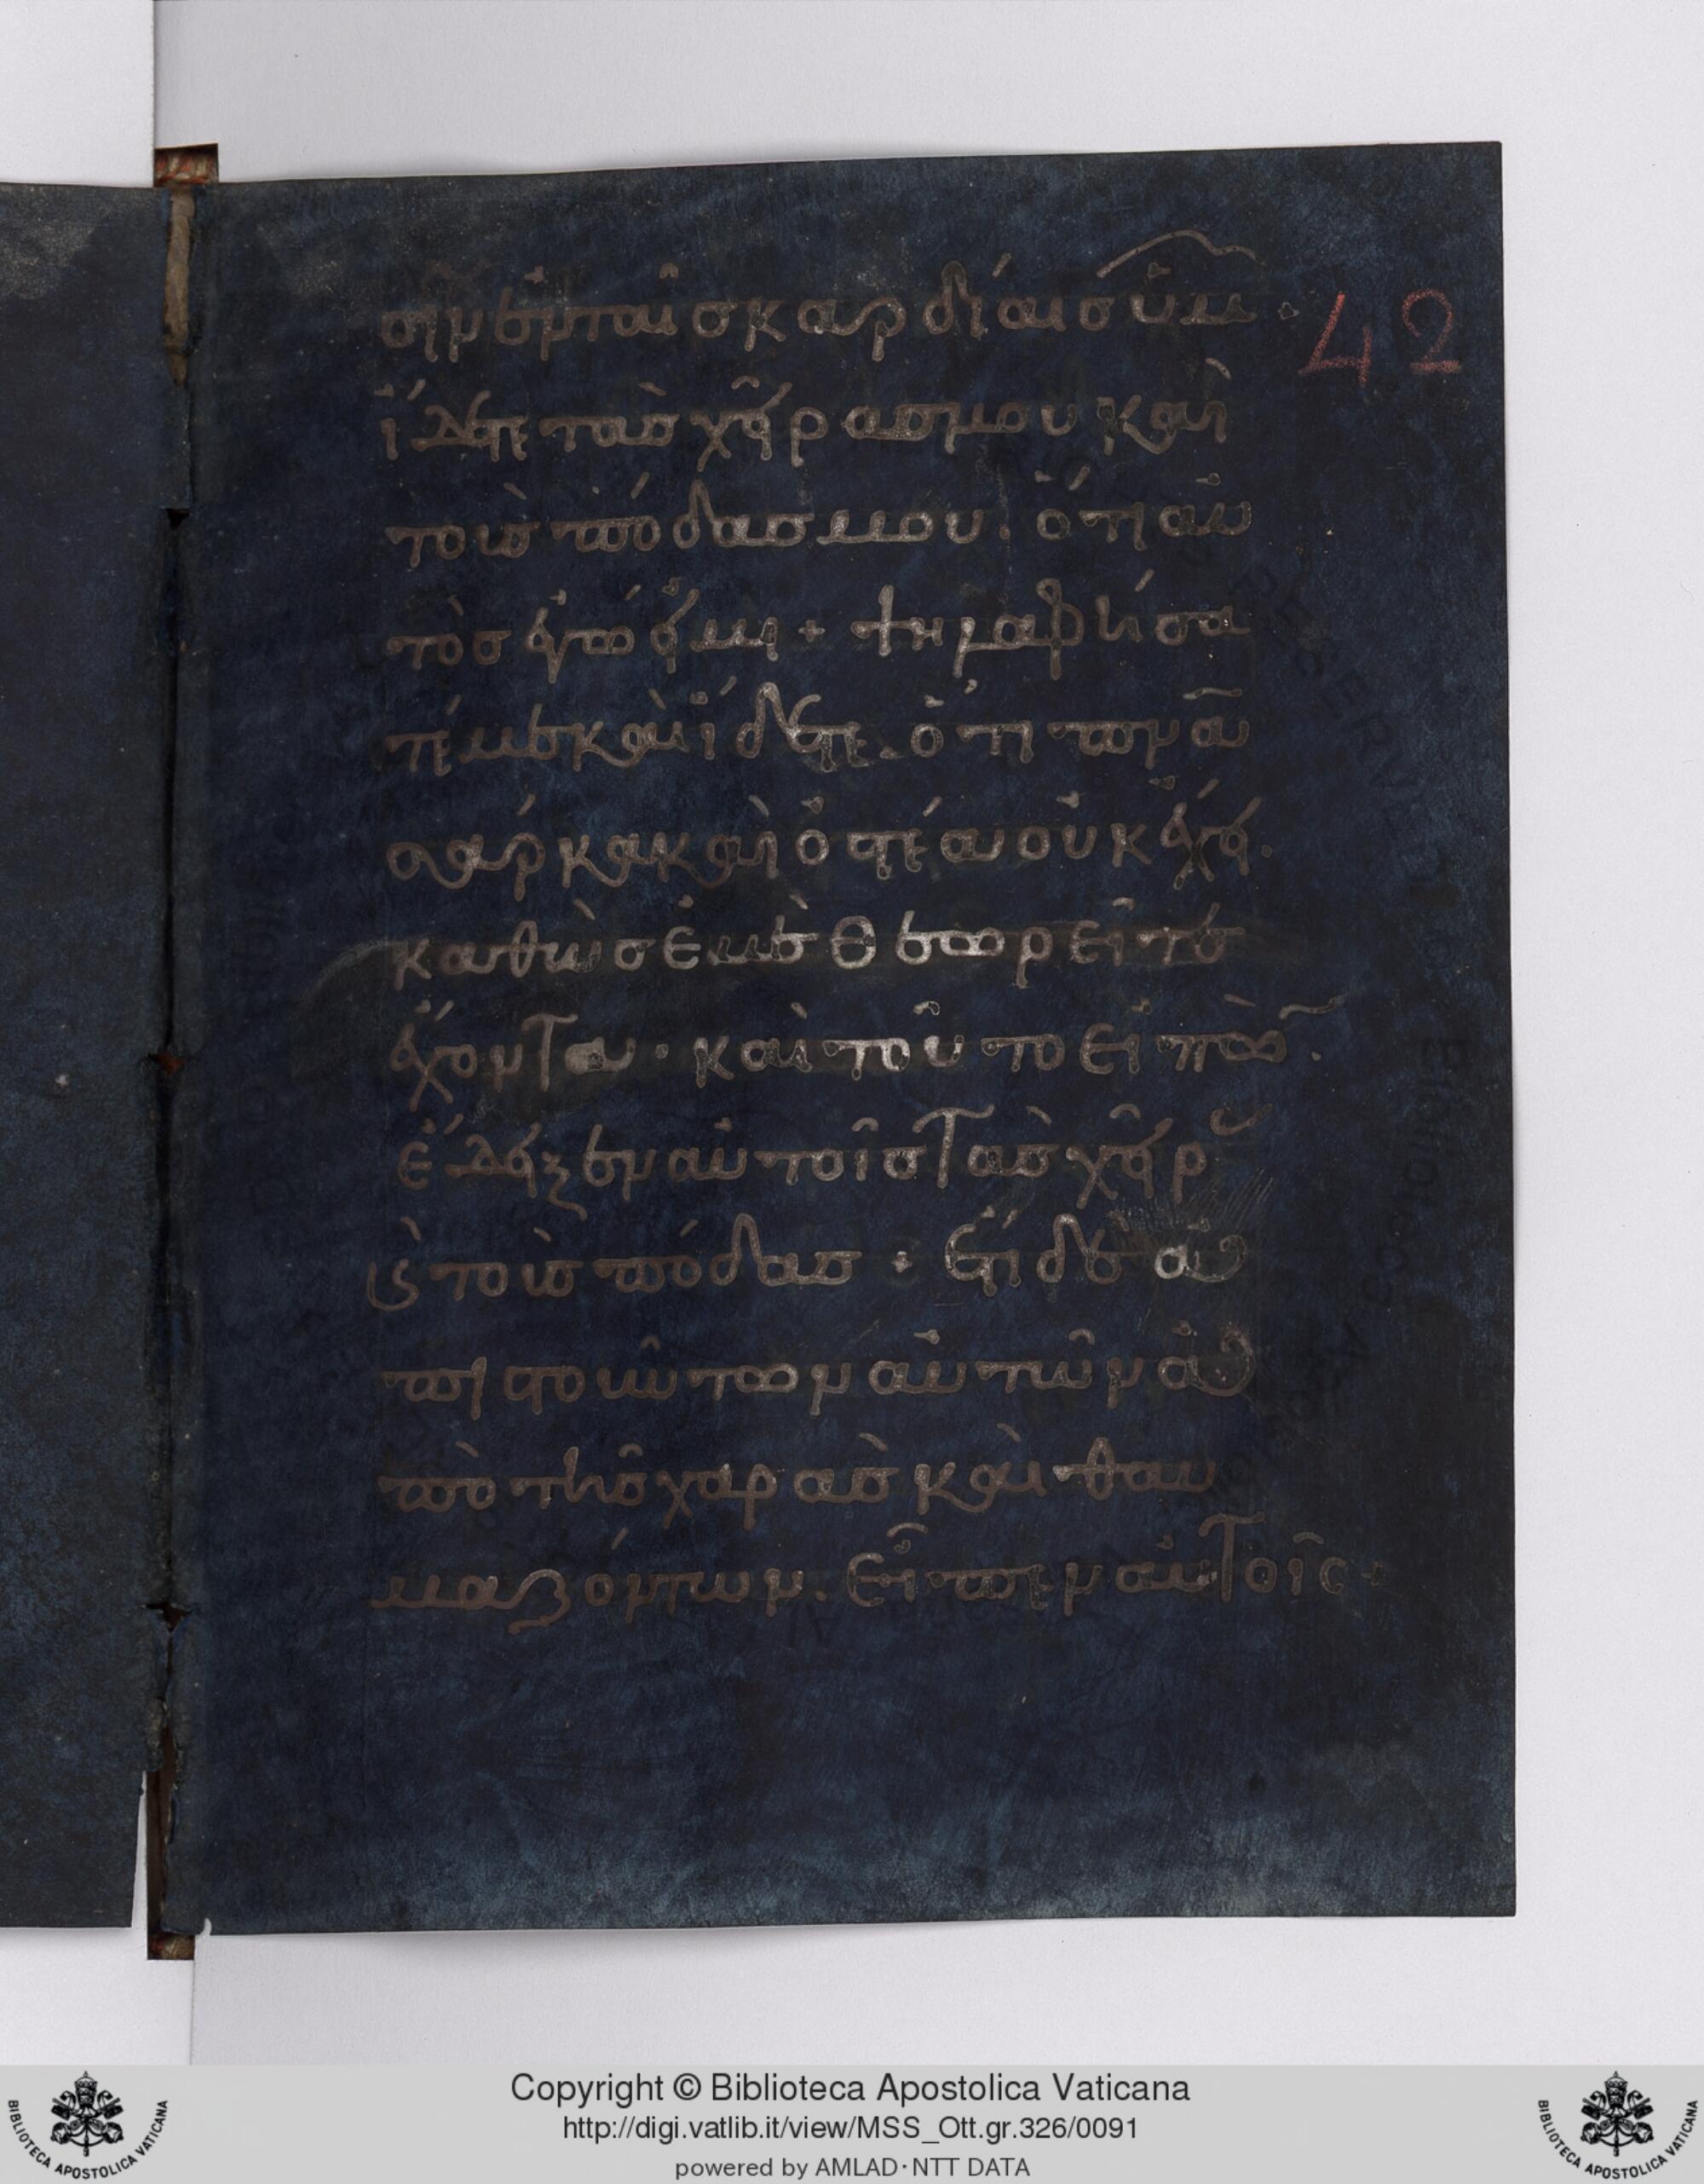 σιν ἐν ταῖς καρδίαις ὑμ·
ἴδετε τὰς χεῖρας μου καὶ
τοὺς πόδας μου. ὅτι αὐ
τὸς ἐγώ εἰμι + ψηλαφήσα
τέ με καὶ ἴδετε. ὅτι πνᾶ
σάρκα καὶ ὀστέα οὐκ ἔχει.
καθὼς ἐμὲ θεωρεῖτε
ἔχοντα. καὶ τοῦτο εἰπὼ.
ἔδειξεν αὐτοῖς τὰς χεῖρ
ϗ τοὺς πόδας + ἔτι δὲ ἀ
πιστούντων αὐτῶν ἀ
πὸ τῆς χαρᾶς καὶ θαυ
μαζόντων. εἶπεν αὐτοῖς·
42
Copyright © Biblioteca Apostolica Vaticana
http://digi.vatlib.it/view/MSS_Ott.gr.326/0091
powered by AMLAD·NTT DATA
BIBLIOTECA APOSTOLICA VATICANA
BIBLIOTECA APOSTOLICA VATICANA